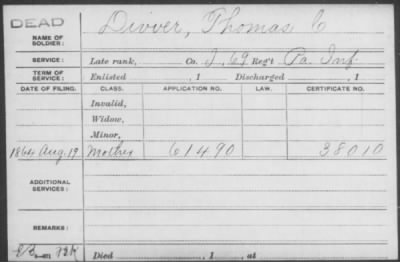 DEAD
NAME OF SOLDIER: Divver, Thomas C
SERVICE: Late rank, Co. I, 69 Reg't Pa. Inf
TERM OF SERVICE: Enlisted , 1 Discharged , 1
DATE OF FILING. CLASS. APPLICATION NO. LAW. CERTIFICATE NO.
Invalid,
Widow,
Minor,
1864 Aug. 19 Mother 61490 38010
ADDITIONAL SERVICES:
REMARKS:
Died , 1 , at